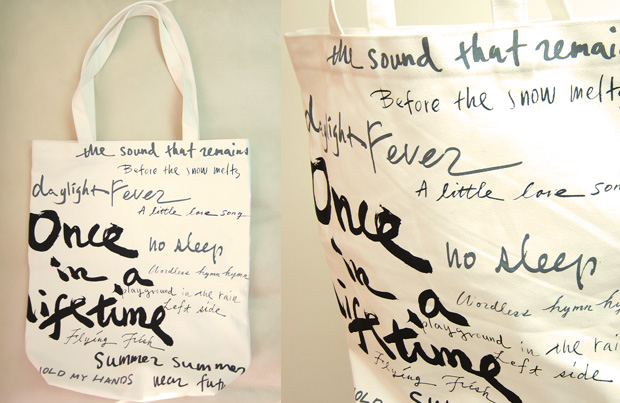 the sound that remains
Before the snow melts
daylight Fever
A little love song
Once
in a
lifetime
no sleep
Wordless hymn hymn
playground in the rain
Left side
Flying Fish
Summer Summer
HOLD MY HANDS
near fut
the sound that remains
Before the snow melts
daylight Fever
A little love son
Once
in a
lifetime
no sleep
Wordless hymn hy
playground in the rai
Left side
Flying Fish